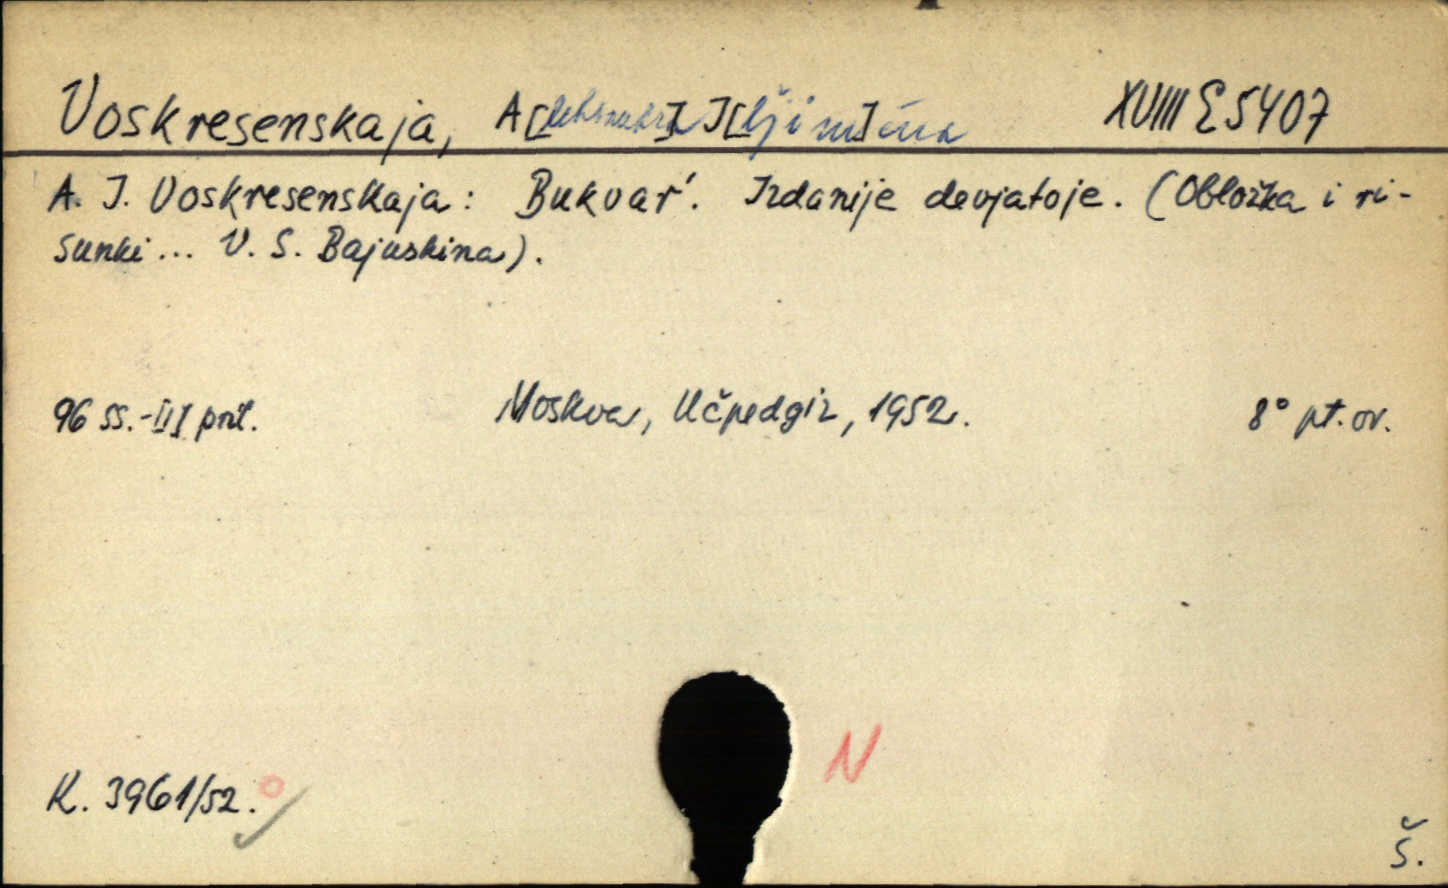 Voskresenskaja, A[leksandra] I[ljini]čna XVIII E 5407
A. I. Voskresenskaja: Bukvar'. Izdanije devjatoje. (Obložka i ri-
sunki... V. S. Bajuskina).
96 ss.-[II] pril. Moskva, Učpedgiz, 1952. 8° pt. ov.
K. 3961/52.
N
Š.